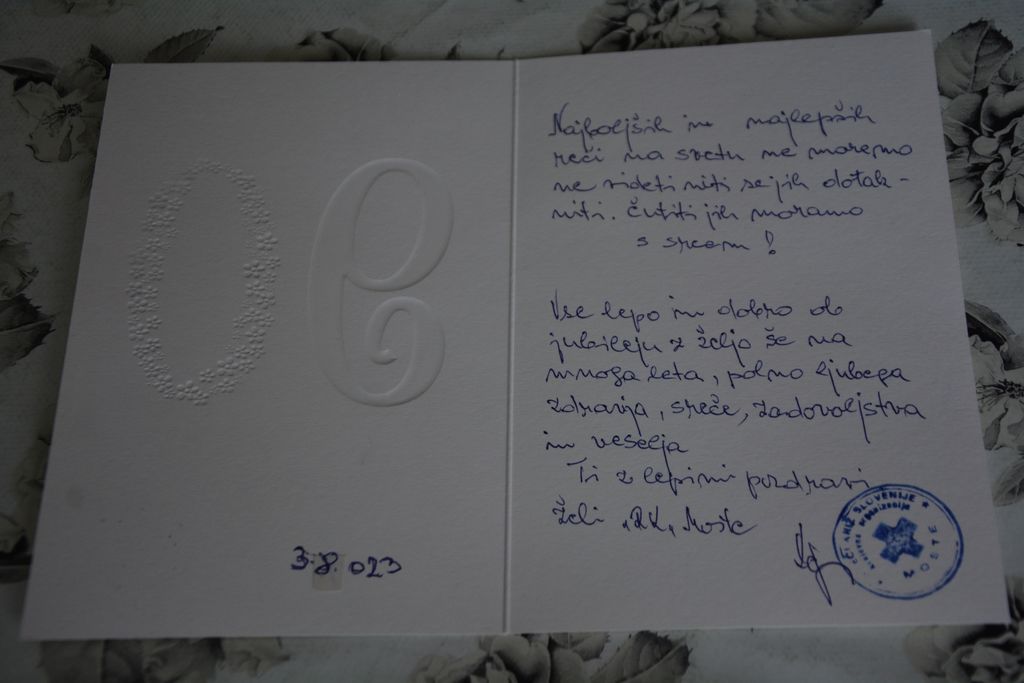 Najboljših in najlepših
reči na svetu ne moremo
ne videti niti se jih dotak-
niti. Čutiti jih moramo
s srcem!
Vse lepo in dobro ob
jubileju z željo še na
mnoga leta, polno ljubega
zdravja, sreče, zadovoljstva
in veselja
Ti z lepimi pozdravi
želi "RK" Moste
SLOVENIJE
MOSTE
3.8.023